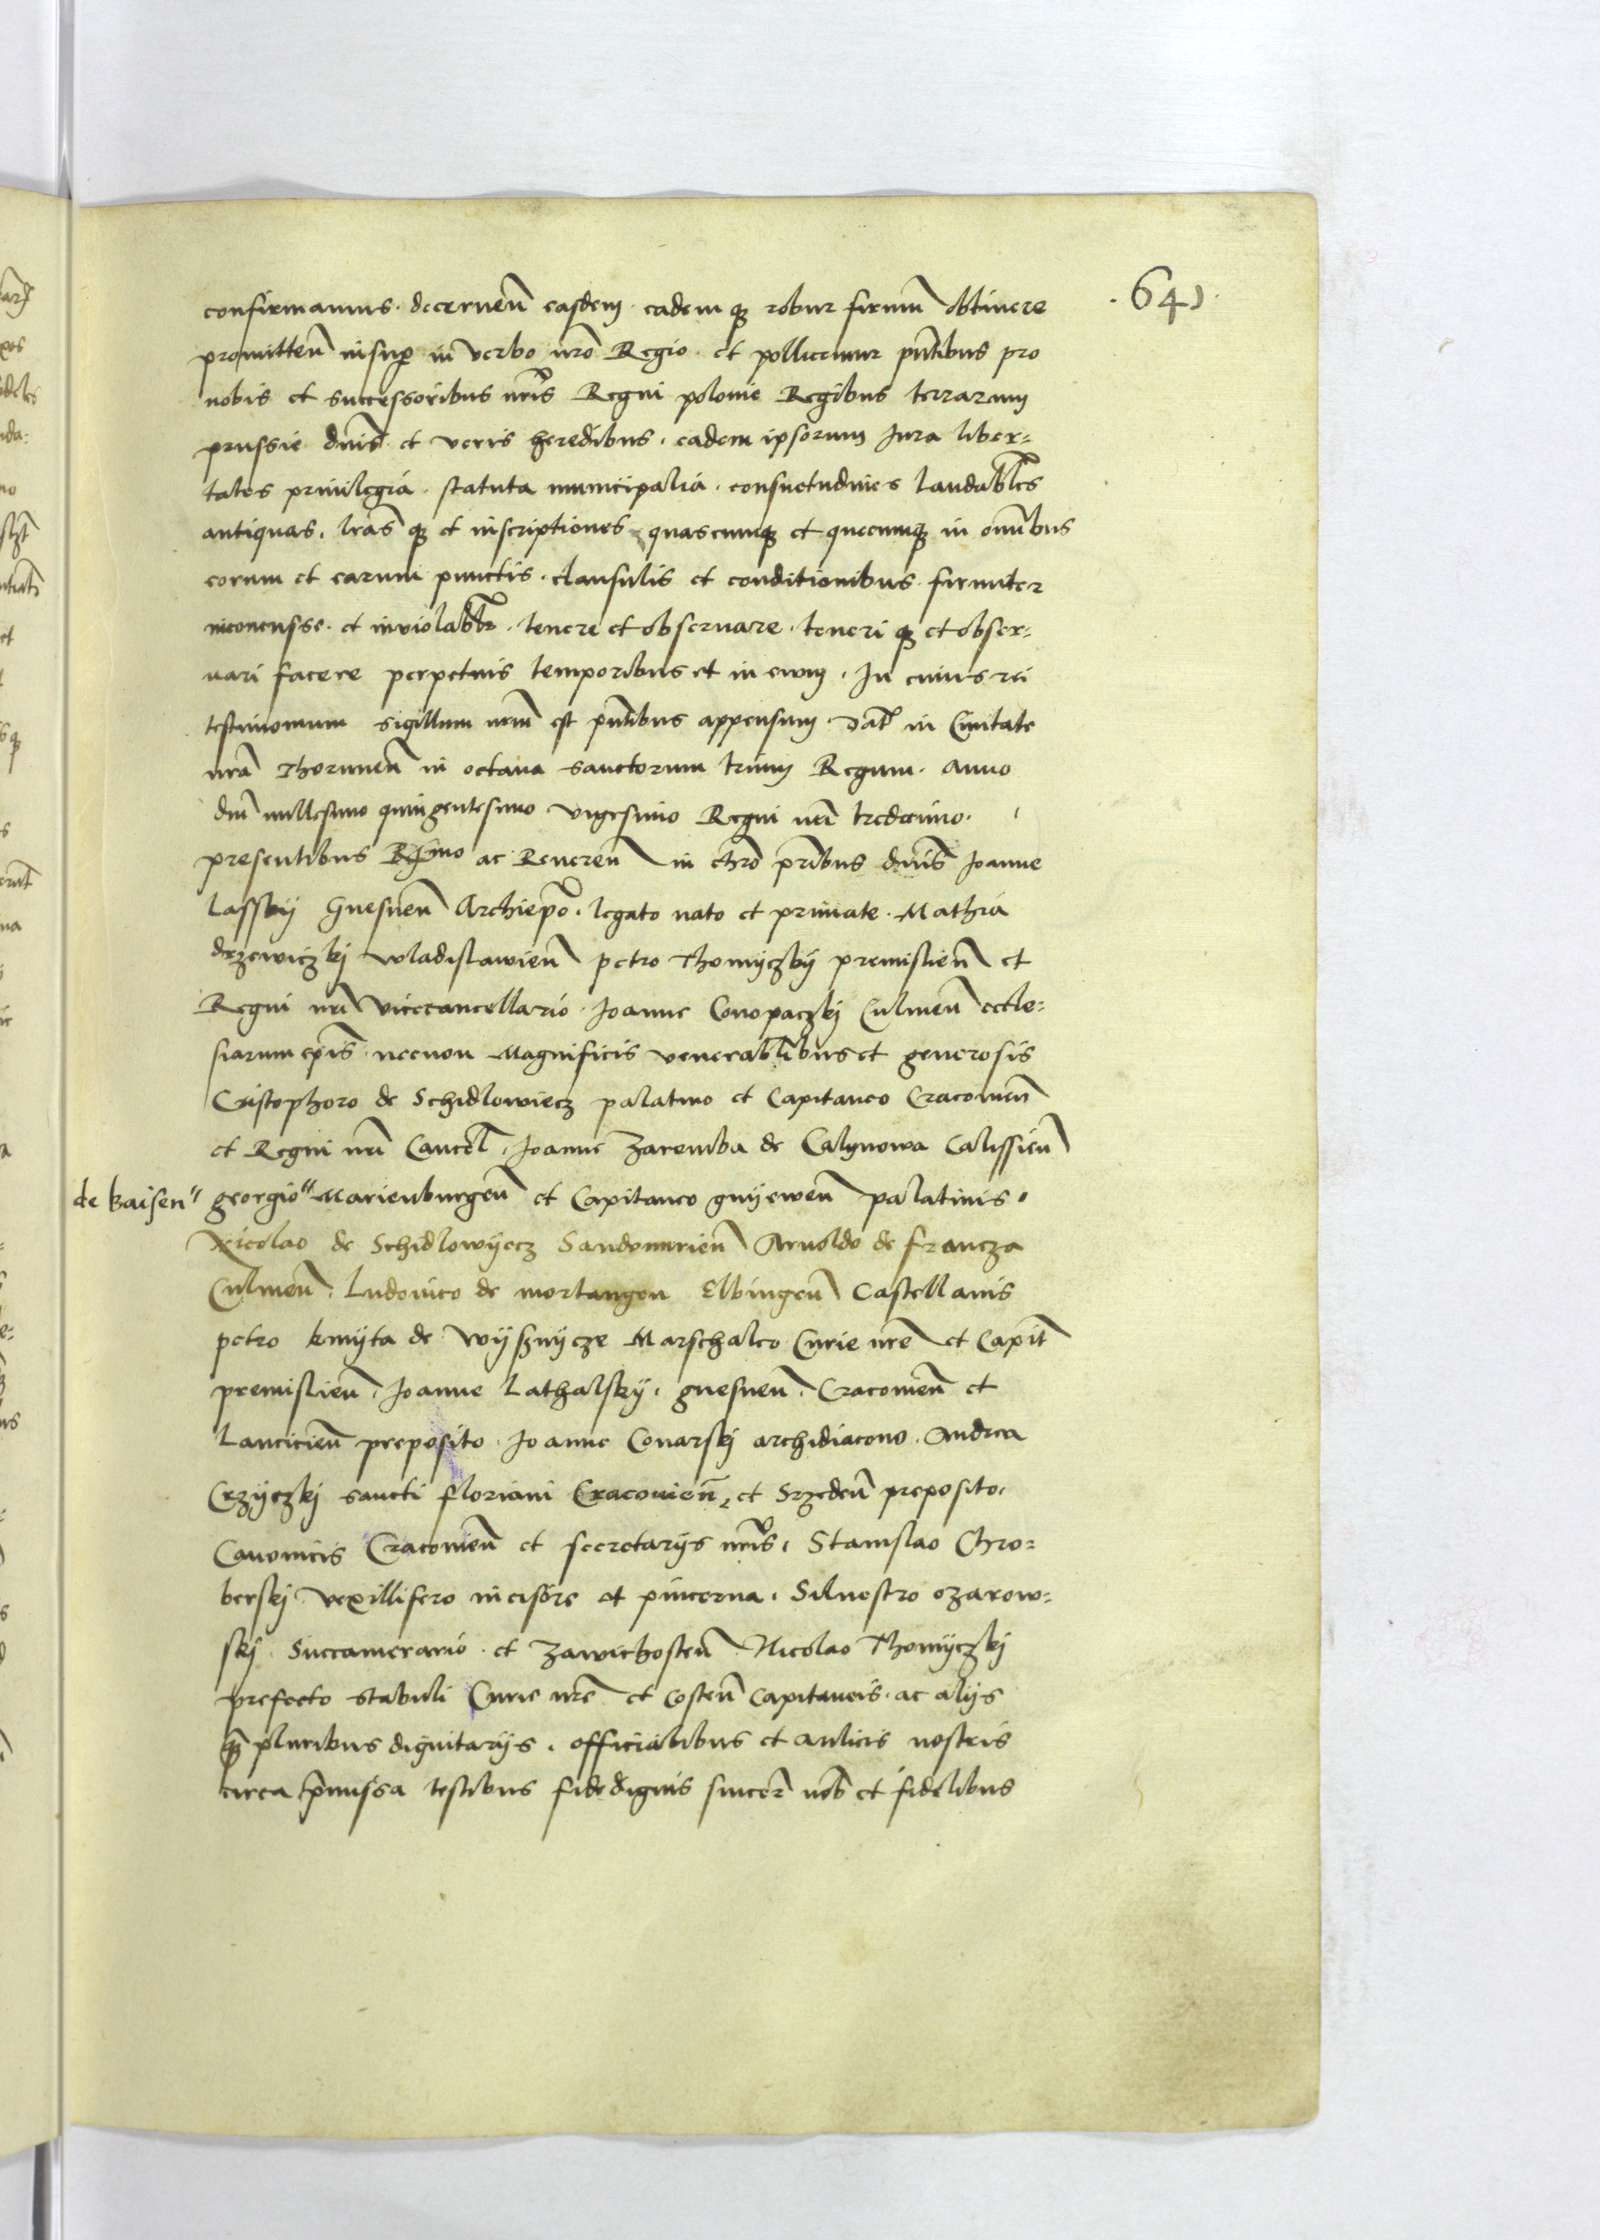 .64).
confirmamus. decernen̄ easdem. eadem qȝ robur firmū obtinere
promitten̄ insuꝑ in verbo nr̄o Regio. et pollicemur pn̄tibus pro
nobis et successoribus nr̄is Regni polonie Regibus terrarum
prussie dn̄is et veris heredibus. eadem ipsorum Jura liber=
tates privilegia. statuta municipalia. consuetudines laudabl̄es
antiquas. lr̄as qȝ et inscriptiones quascunqȝ et quecunqȝ in om̄ibus
eorum et earum punctis. clausulis et conditionibus. firmiter
inconcusse. et inviolabl̄r. tenere et observare. teneri qȝ et obser=
vari facere perpetuis temporibus et in evum. In cuius rei
testimonium sigillum nr̄m est pn̄tibus appensum. Dat̄ in Civitate
nr̄a Thorunen̄ in octava sanctorum trium Regum. Anno
dn̄i millesimo quingentesimo vigesimo Regni nr̄i tredecimo.
presentibus R̄mo ac Reveren̄ in chr̄o pr̄ibus dn̄is Joanne
Lasskij Gnesnen̄ Archiep̄o. legato nato et primate. Mathia
drzewiczkj Wladislawien̄ petro Thomijczkij premislien̄ et
Regni nr̄i vicecancellario. Joanne Conopaczkj Culmen̄ eccle=
siarum ep̄is. necnon Magnificis venerabl̄ibus et generosis
Cristophoro de Schidlowiecz palatino et Capitaneo Cracovien̄
et Regni nr̄i Cancel̄. Joanne Zaremba de Calynowa Calissien̄
de baisen" georgio" Marienburgen̄ et Capitaneo gnijewen̄ palatinis.
Nicolao de Schidlowijecz Sandomirien̄ Arnoldo de francza
Culmen̄. Ludovico de mortangen Elbingen̄ Castellanis
petro kmijta de Wijsznijcze Marschalco Curie nr̄e et Capit̄
premislien̄. Joanne Lathalskij. gnesnen̄. Cracovien̄ et
Lancicien̄ preposito. Joanne Conarskj archidiacono. Andrea
Crzijczkj sancti floriani Cracovien̄ et Srzeden̄ preposito.
Canonicis Cracovien̄ et secretarijs nr̄is. Stanislao Chro=
berskj vexillifero incisore et pincerna. Silvestro ozarow=
skj. Succamerario. et Zawichosten̄ Nicolao Thomijczkj
prefecto stabuli Curie nr̄e et Costen̄ Capitaneis. ac alijs
qȝ pluribus dignitarijs. officialibus et aulicis nostris
circa p̄missa testibus fidedignis sincer̄ nob̄ et fidelibus